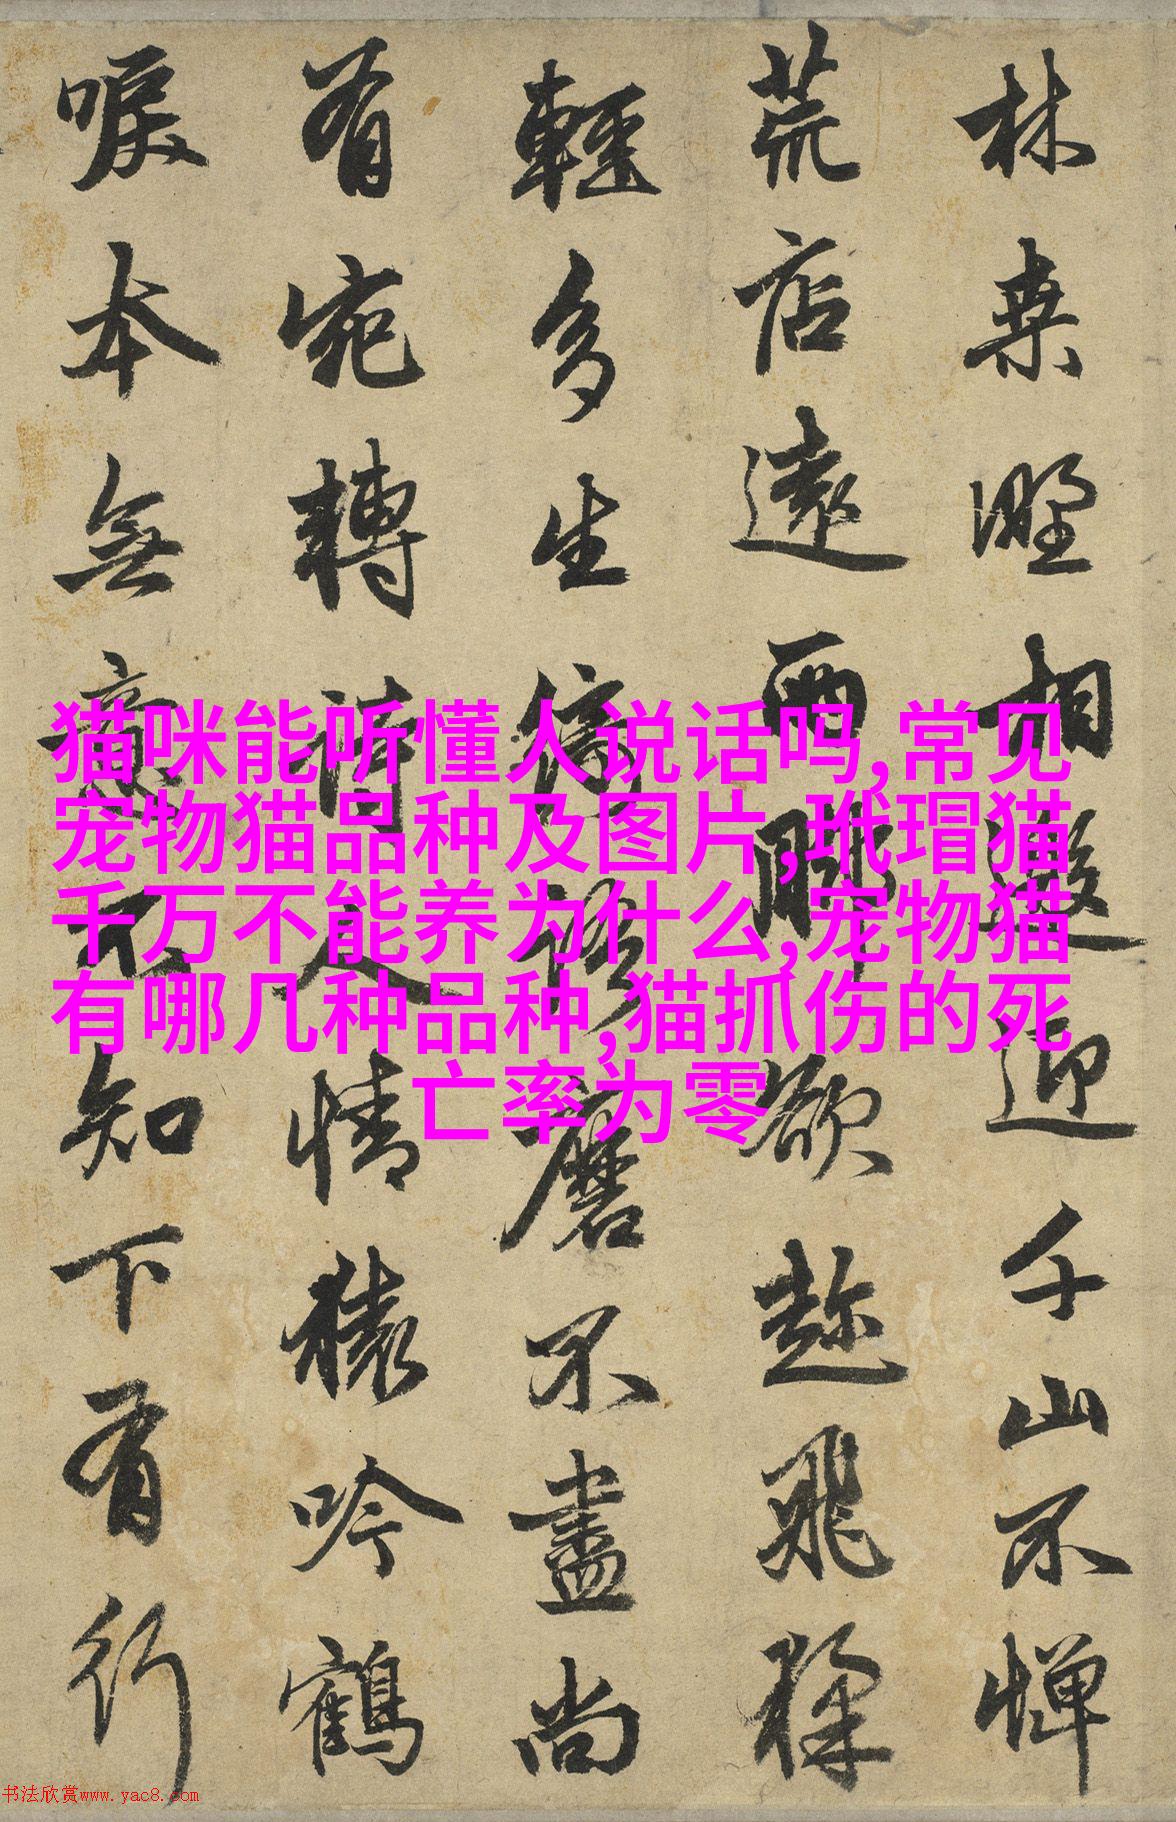 林桒野相邀迎千山不憚
荒店遠兩脚欲趂飛猱
輕多生綺語磨不盡尚
有宛轉詩人情猿吟鶴
唳本無意不知下有行
猫咪能听懂人说话吗,常见
宠物猫品种及图片,玳瑁猫
千万不能养为什么,宠物猫
有哪几种品种,猫抓伤的死
亡率为零
书法欣赏www.yac8.com